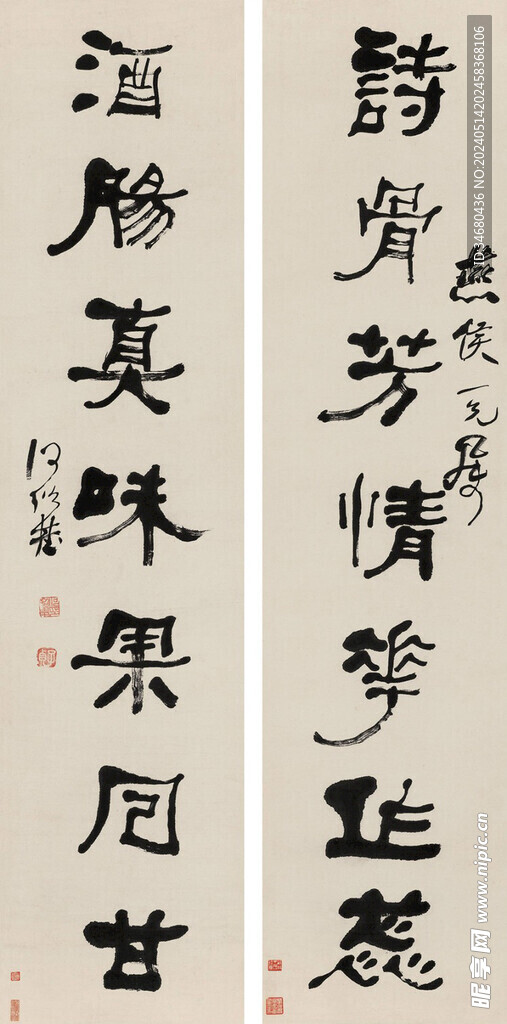 詩骨芳情華作蕊
燕侯一兄屬
酒腸真味果同甘
何紹基
ID:34680436 NO:20240514202458368106
昵享网 www.nipic.cn